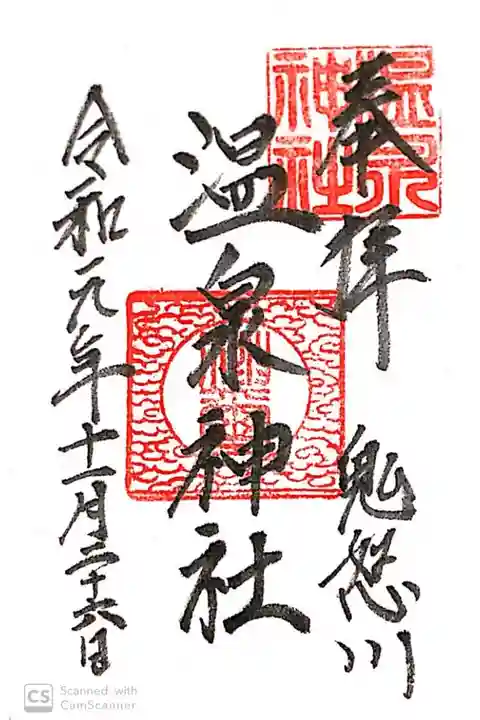 奉拝
鬼怒川
温泉神社
令和元年十一月二十六日
温泉
神社
CS Scanned with
CamScanner